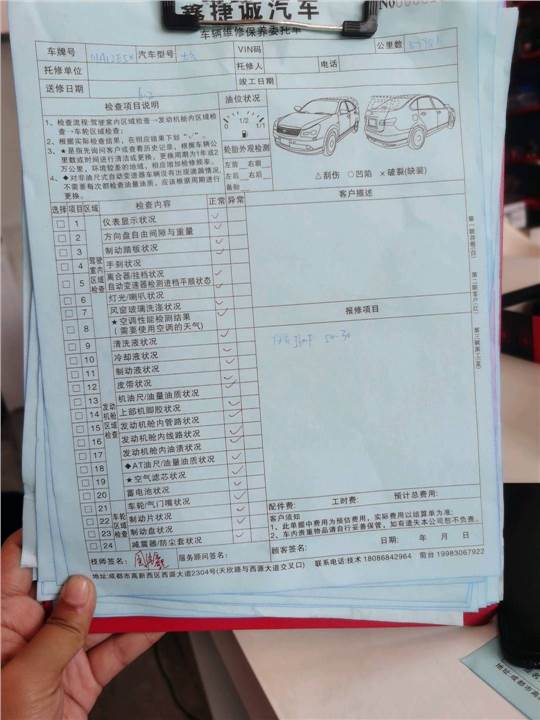 赛捷诚汽车
车辆维修保养委托车
车牌号 汽车型号 VIN码 公里数
托修单位 托修人 电话
送修日期 竣工日期
检查项目说明
1、检查流程:驾驶室内区域检查→发动机舱内区域检查→车轮区域检查;
2、根据实际检查内容,在相应结果下划“✓”。
3、★是指先询问客户或查看历史记录,根据车辆公里数或时间进行清洁或更换。更换周期为1年或2万公里,环境较差的地域,相应增加检修频率。
4、◆对非油尺式自动变速器车辆没有出现泄漏情况,不需要每次都检查油量油质,应该根据周期进行更换。
油位状况
0 1/2 1/1
轮胎外观检测
左前 右前
左后 右后
备胎
△刮伤 ○凹陷 ×破裂(缺装)
选择 项目 区域 检查内容 正常 异常
客户描述
驾驶室内区域检查
1 仪表显示状况
2 方向盘自由间隙与重量
3 制动踏板状况
4 手刹状况
5 离合器/挂档状况
自动变速器检测进档平顺状态
6 灯光/喇叭状况
7 风窗玻璃洗涤状况
8 ★空调性能检测结果
(需要使用空调的天气)
报修项目
发动机舱区域检查
9 清洗液状况
10 冷却液状况
11 制动液状况
12 皮带状况
13 机油尺/油量油质状况
14 上部机脚胶状况
15 发动机舱内管路状况
16 发动机舱内线路状况
17 发动机舱内油渍状况
18 ◆AT油尺/油量油质状况
19 ★空气滤芯状况
20 蓄电池状况
车轮区域检查
21 车轮/气门嘴状况
22 制动片状况
23 制动盘状况
24 减震器/防尘套状况
配件费: 工时费: 预计总费用:
客户须知
1、此单据中费用为预估费用,实际费用以结算单为准。
2、车内贵重物品请自行妥善保管,如有遗失本公司恕不负责。
日期: 年 月 日
技师签名: 服务顾问签名: 顾客签名:
地址:成都市高新西区西源大道2304号(天欣路与西源大道交叉口) 联系电话:技术 18086842964 前台 19983067922